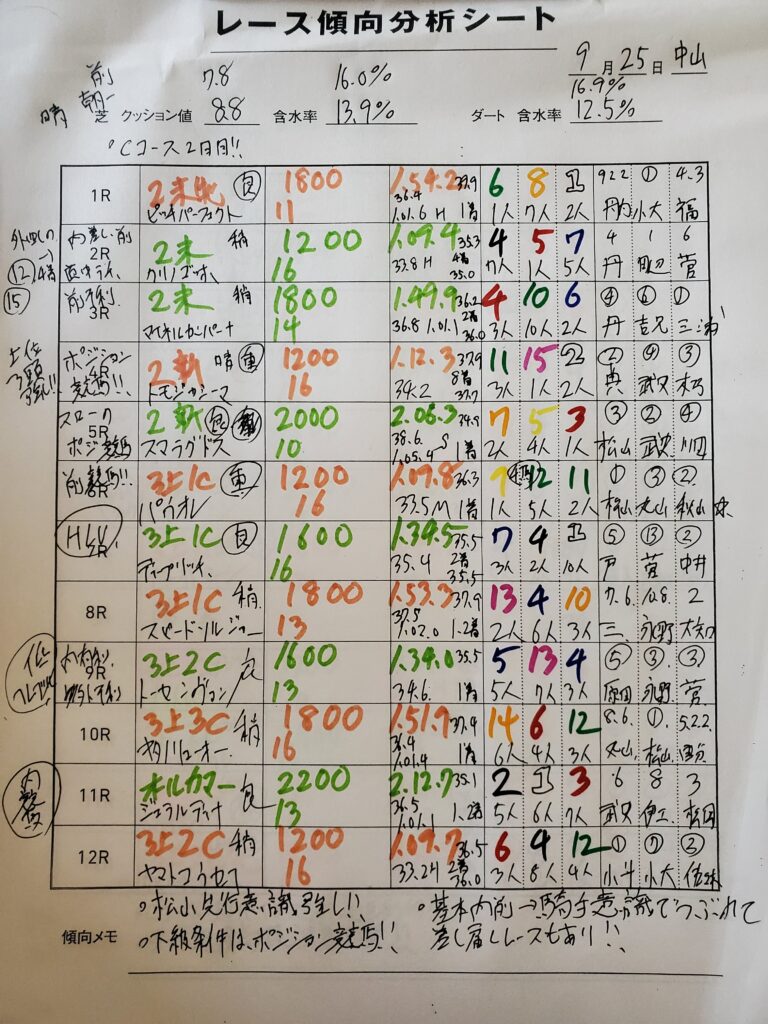 レース傾向分析シート
9月25日 中山
前 7.8 16.0% 16.9%
晴 朝一 芝 クッション値 8.8 含水率 13.9% ダート 含水率 12.5%
Cコース2日目!!
1R 2未 良 1800 1.54.2 37.9 6 8 1 922 ① 4.3
ピッチパーフェクト 11 36.4 1.01.6 H 1着 1人 7人 2人 丹内 小大 福
内差し 前 2R 2未 稍 1200 1.09.4 35.3 4 5 7 4 1 6
⑫ 4着 16 33.8 H 4着 35.0 7人 1人 5人 丹 田辺 菅
⑮ 前不利 3R 2未 稍 1800 1.49.9 36.2 4 10 6 ④ ⑥ ①
14 36.8 1.01.1 2着 36.0 3人 10人 2人 丹 三浦
上位 ポジション競馬!! 4R 2新 晴 重 1200 1.12.3 37.9 11 15 2 ② ④ ③
トモジャシーマ 16 34.2 8着 37.7 3人 1人 2人 典 武史
スローク ポジ競馬 5R 2新 2000 2.06.3 34.9 7 5 3 ③ ② ④
スマラグドス 10 38.6 1.05.4 S 1着 2人 4人 1人 松山 武史 川田
前競馬!! 6R 3上1C 重 1200 1.09.8 36.3 9 12 11 ① ③ ②
パウオレ 16 33.5 M 1着 1人 5人 2人 松山 丸山 秋山
7R 3上1C 良 1600 1.34.5 35.5 7 4 1 ⑤ ⑬ ②
ディープリッチ 16 35.4 2着 35.5 3人 2人 10人 戸 菅 中井
8R 3上1C 稍 1800 1.53.3 37.9 13 4 10 7.6. 10.8. 2
スピードソルジャー 13 37.5 1.02.0 1.2着 2人 6人 3人 三 永野 大知
9R 3上2C 良 1600 1.34.0 35.5 5 13 4 ⑤ ③ ③
トーセンヴァンノ 13 34.6 1着 5人 7人 3人 原田 永野 菅
10R 3上3C 稍 1800 1.51.7 37.4 14 6 12 8.6. ① 5.2.2
16 36.4 1.01.4 1着 6人 4人 3人 丸山 松山
11R オルカマー 良 2200 2.12.7 35.1 2 1 3 6 8 3
ジェラルディーナ 13 36.5 1.01.1 1.2着 5人 6人 7人 武史 伊工 松田
12R 3上2C 稍 1200 1.09.7 36.5 6 4 12 ① ⑦ ②
ヤマトコウセイ 16 33.2 H 2着 36.0 3人 8人 4人 小牛 小大
傾向メモ
松山 先行意識強し!!
下級条件は、ポジション競馬!!
基本内前→騎手意識でつぶれて
差し届くレースもあり!!